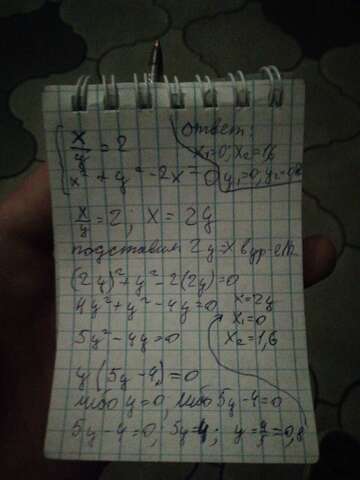 x/y = 2
x² + y² - 2x = 0
ответ:
x₁=0; x₂=1,6
y₁=0, y₂=0,8
x/y = 2; x = 2y
подставим 2y=x в ур-е
(2y)² + y² - 2(2y) = 0
4y² + y² - 4y = 0
5y² - 4y = 0
x=2y
x₁=0
x₂=1,6
y(5y-4) = 0
либо y=0, либо 5y-4=0
5y-4=0; 5y=4; y=4/5=0,8